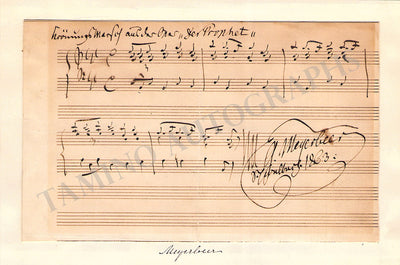 Krönungs Marsch aus der Oper „Der Prophet„
G. Meyerbeer
1863.
TAMINO AUTOGRAPHS
Meyerbeer